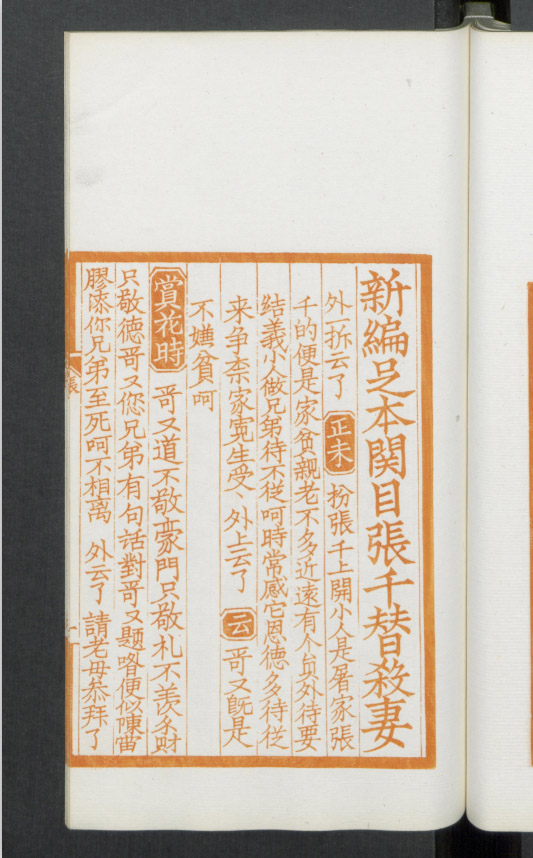 新編足本関目張千替殺妻
外一折云了 正末 扮張千上開小人是屠家張
千的便是家貧親老不多近遠有个員外待要
結義小人做兄弟待不從呵時常感它恩德多待從
来争柰家寛生受、外上云了 云 哥又既是
不嫌貧呵
賞花時 哥又道不敬豪門只敬礼不羡財
只敬德哥又您兄弟有句話對哥又題咱便似陳雷
膠漆你兄弟至死呵不相离 外云了 請老母恭拜了
張